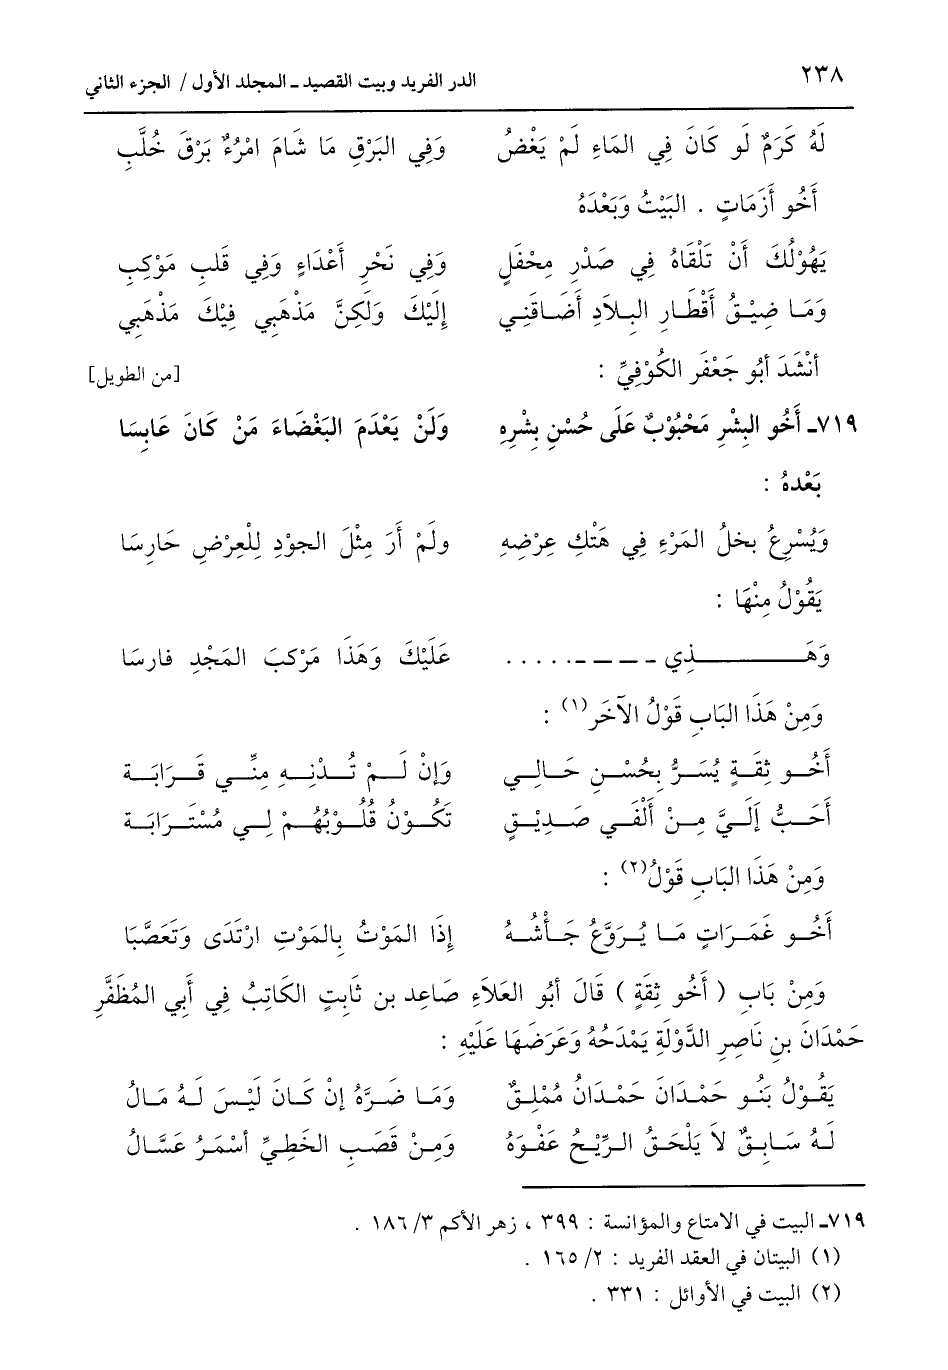 ٢٣٨ الدر الفريد وبيت القصيد ـ المجلد الأول / الجزء الثاني
لَهُ كَرَمٌ لَو كَانَ فِي المَاءِ لَمْ يَغْضُ وَفِي البَرْقِ مَا شَامَ امْرُءٌ بَرْقَ خُلَّبِ
أَخُو أَزَمَاتٍ . البَيْتُ وَبَعْدَهُ
يَهُوْلُكَ أَنْ تَلْقَاهُ فِي صَدْرِ مِحْفَلٍ وَفِي نَحْرِ أَعْدَاءٍ وَفِي قَلبِ مَوْكِبِ
وَمَا ضِيْقُ أَقْطَارِ البِلَادِ أَضَاقَنِي إِلَيْكَ وَلَكِنَّ مَذْهَبِي فِيْكَ مَذْهَبِي
أَنْشَدَ أَبُو جَعْفَر الكُوْفِيِّ : [من الطويل]
٧١٩ـ أَخُو البِشْرِ مَحْبُوْبٌ عَلَى حُسْنِ بِشْرِهِ وَلَنْ يَعْدَمَ البَغْضَاءَ مَنْ كَانَ عَابِسَا
بَعْدهُ :
وَيُسْرِعُ بخلُ المَرْءِ فِي هَتْكِ عِرْضِهِ ولَمْ أَرَ مِثْلَ الجوْدِ لِلْعِرْضِ حَارِسَا
يَقُوْلُ مِنْهَا :
وَهَــــــــــذِي ـ ـ ـ ـ . . . . . عَلَيْكَ وَهَذَا مَرْكبَ المَجْدِ فارسَا
وَمِنْ هَذَا البَابِ قَوْلُ الآخَر(١) :
أَخُــو ثِقَــةٍ يُسَــرُّ بِحُسْــنِ حَــالِــي وَإِنْ لَــمْ تُــدْنِــهِ مِنِّــي قَــرَابَــة
أَحَــبُّ إِلَــيَّ مِــنْ أَلْفَــي صَــدِيْــقٍ تَكُــوْنُ قُلُــوْبُهُــمْ لِــي مُسْتَــرَابَــة
وَمِنْ هَذَا البَابِ قَوْلُ(٢) :
أَخُــو غَمَــرَاتٍ مَــا يُــرَوَّعُ جَــأْشُــهُ إِذَا المَوْتُ بِالمَوْتِ ارْتَدَى وَتَعَصَّبَا
وَمِنْ بَابِ ( أَخُو ثِقَةٍ ) قَالَ أَبُو العَلاَءِ صَاعِد بن ثَابِتٍ الكَاتِبُ فِي أَبِي المُظَفَّرِ
حَمْدَانَ بنِ نَاصِرِ الدَّوْلَةِ يَمْدَحُهُ وَعَرَضَهَا عَلَيْهِ :
يَقُــوْلُ بَنُــو حَمْــدَانَ حَمْــدَانُ مُمْلِــقٌ وَمَــا ضَــرَّهُ إِنْ كَــانَ لَيْــسَ لَــهُ مَــالُ
لَــهُ سَــابِــقٌ لاَ يَلْحَــقُ الــرِّيْــحُ عَفْــوَهُ وَمِــنْ قَصَــبِ الخَطِــيِّ أَسْمَــرُ عَسَّــالُ
٧١٩ـ البيت في الامتاع والمؤانسة : ٣٩٩ ، زهر الأكم ٣/ ١٨٦ .
(١) البيتان في العقد الفريد : ٢/ ١٦٥ .
(٢) البيت في الأوائل : ٣٣١ .